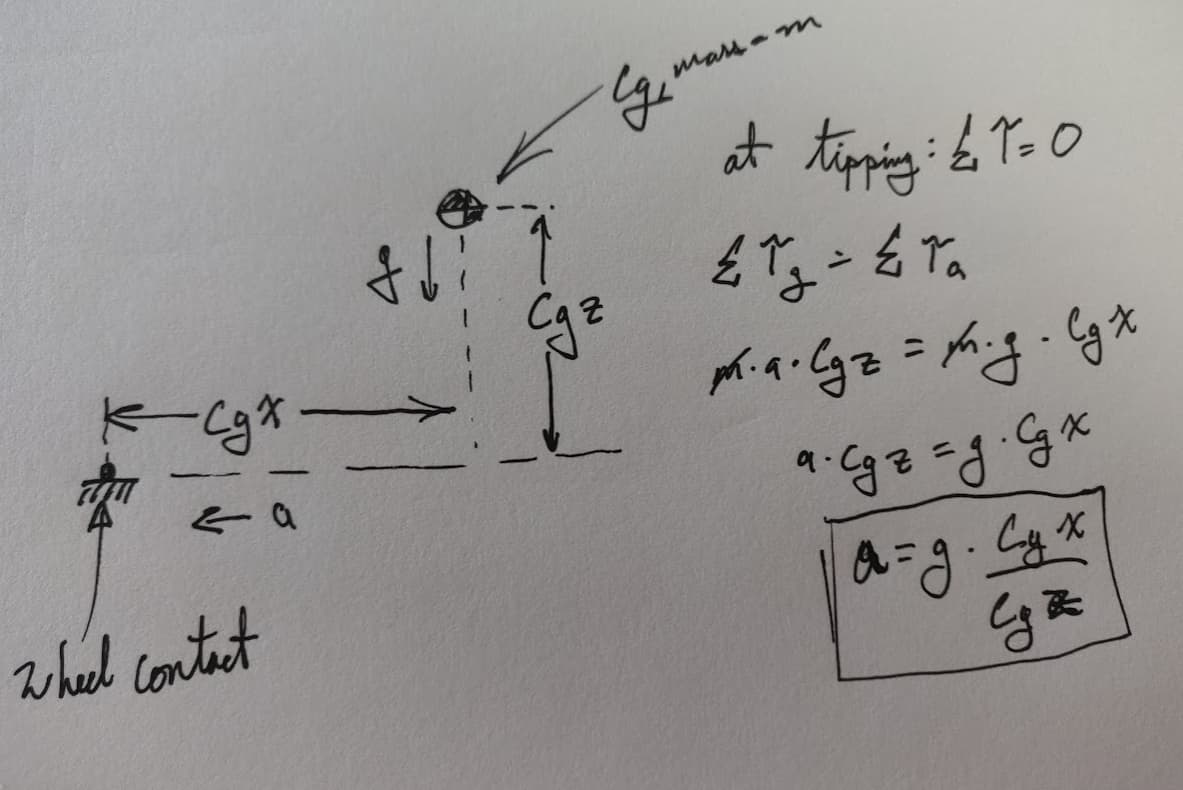 Cg, mass = m
at tipping: Σ τ = 0
Σ τg = Σ τa
m · a · Cg z = m · g · Cg x
a · Cg z = g · Cg x
a = g · Cg x / Cg z
g
Cg z
Cg x
a
wheel contact